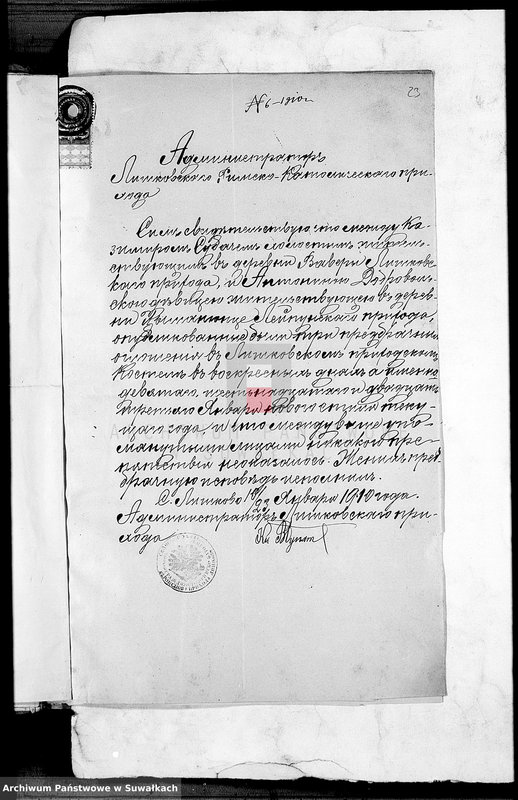 № 6 - 1910 г.
23
Администраторъ
Лишковскаго Римско-Католическаго при-
хода
Симъ свидетельствую, что между Ка-
зимиромъ Судачемъ холостымъ житель-
ствующимъ въ деревни Вавери Лишковс-
каго прихода, и Антониною Добровол-
скою девицею жительствующею въ дерев-
ни Лейпунскаго прихода,
опубликованные были три предбрачныя
оглашенія въ Лишковскомъ приходскомъ
костеле въ воскресныя дни а именно
девятаго, шестьнадцатаго и двадцать
третьяго Января новаго стиля теку-
щаго года и что между выше упо-
мянутыми лицами никакого пре-
пятствія неоказалось. Женихъ пред-
брачную исповедь исполнилъ.
С. Лишково 10/23 Января 1910 года.
Администраторъ Лишковскаго при-
хода Кс.
Archiwum Państwowe w Suwałkach